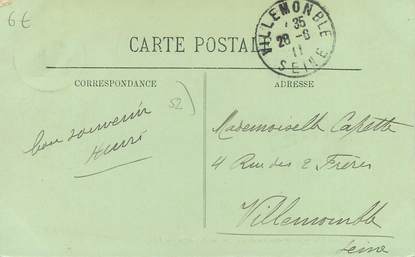 6€
VILLEMOMBLE
35
28-8
11
SEINE
CARTE POSTALE
CORRESPONDANCE
ADRESSE
52
bon souvenir
Henri
Mademoiselle Capette
4 Rue des 2 Frères
Villemomble
Seine